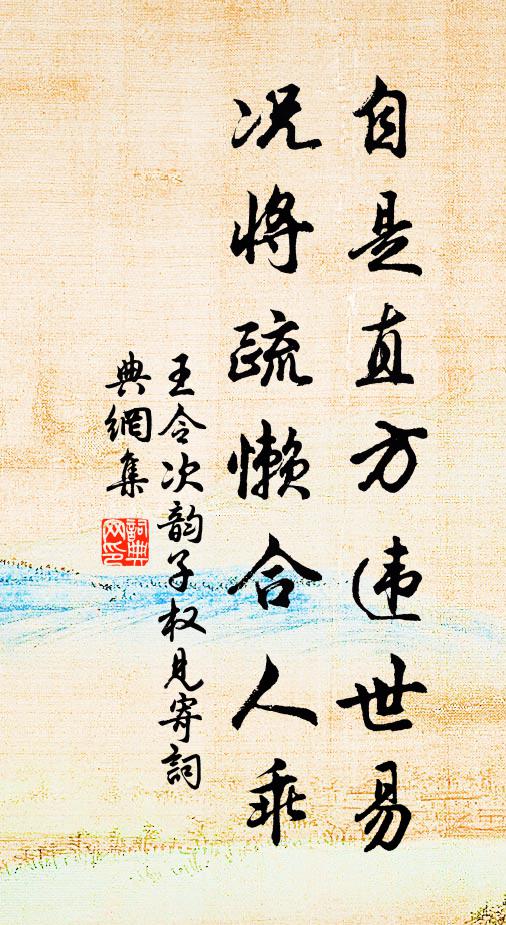 自是直方违世易
况将疏懒合人乖
王令次韵子权见寄词
典網集
詞典网印